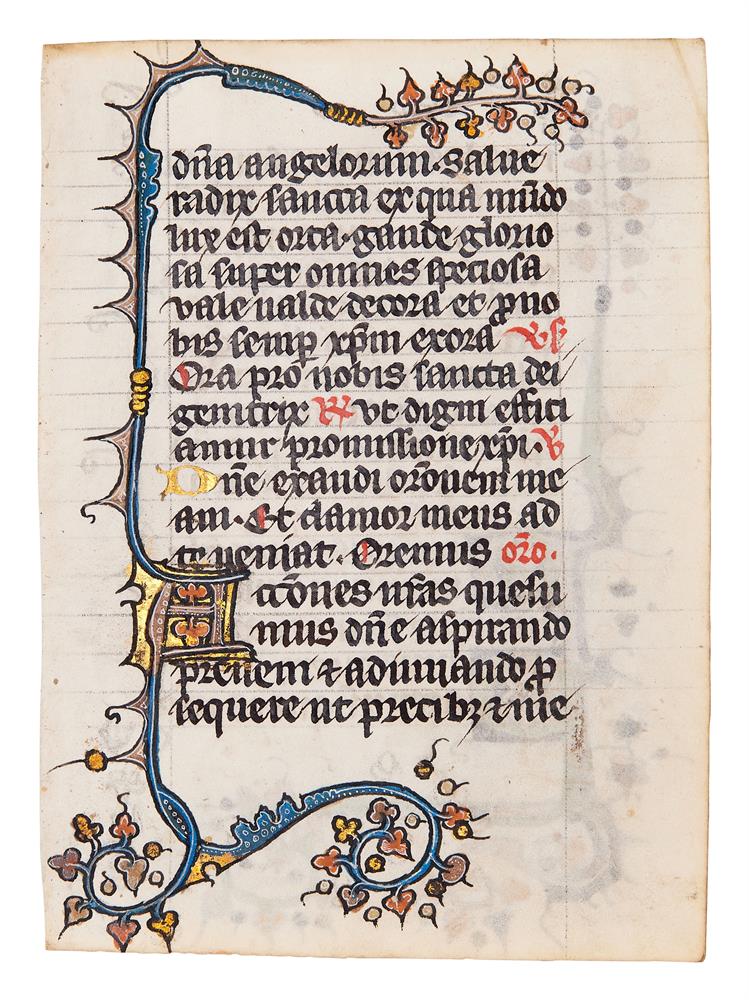 dn̄a angelorum·Salue
radix sancta ex qua mūdo
lux est orta·gaude glorio
sa super omnes speciosa
vale ualde decora et ꝓno
bis semꝑ xp̄m exora ℣s
Ora pro nobis sancta dei
genitrix ℟ vt digni effici
amur promissione xp̄i·℣
Dn̄e exaudi orōnem me
am·Et clamor meus ad
te ueniat·Oremus orō·
Accōnes nr̄as quesu
mus dn̄e aspirando
preueni ⁊ adiuuando ꝓ
sequere ut precibꝫ ⁊ me